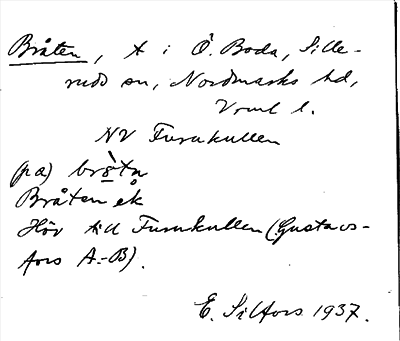 Bråten, t i Ö. Boda, Sille-
rud sn, Nordmarks hd,
Vrml l.
NV Furukullen
på) bròtn
Bråten ek
Hör till Furukullen (Gustavs-
fors A.-B).
E. Silfors 1937.